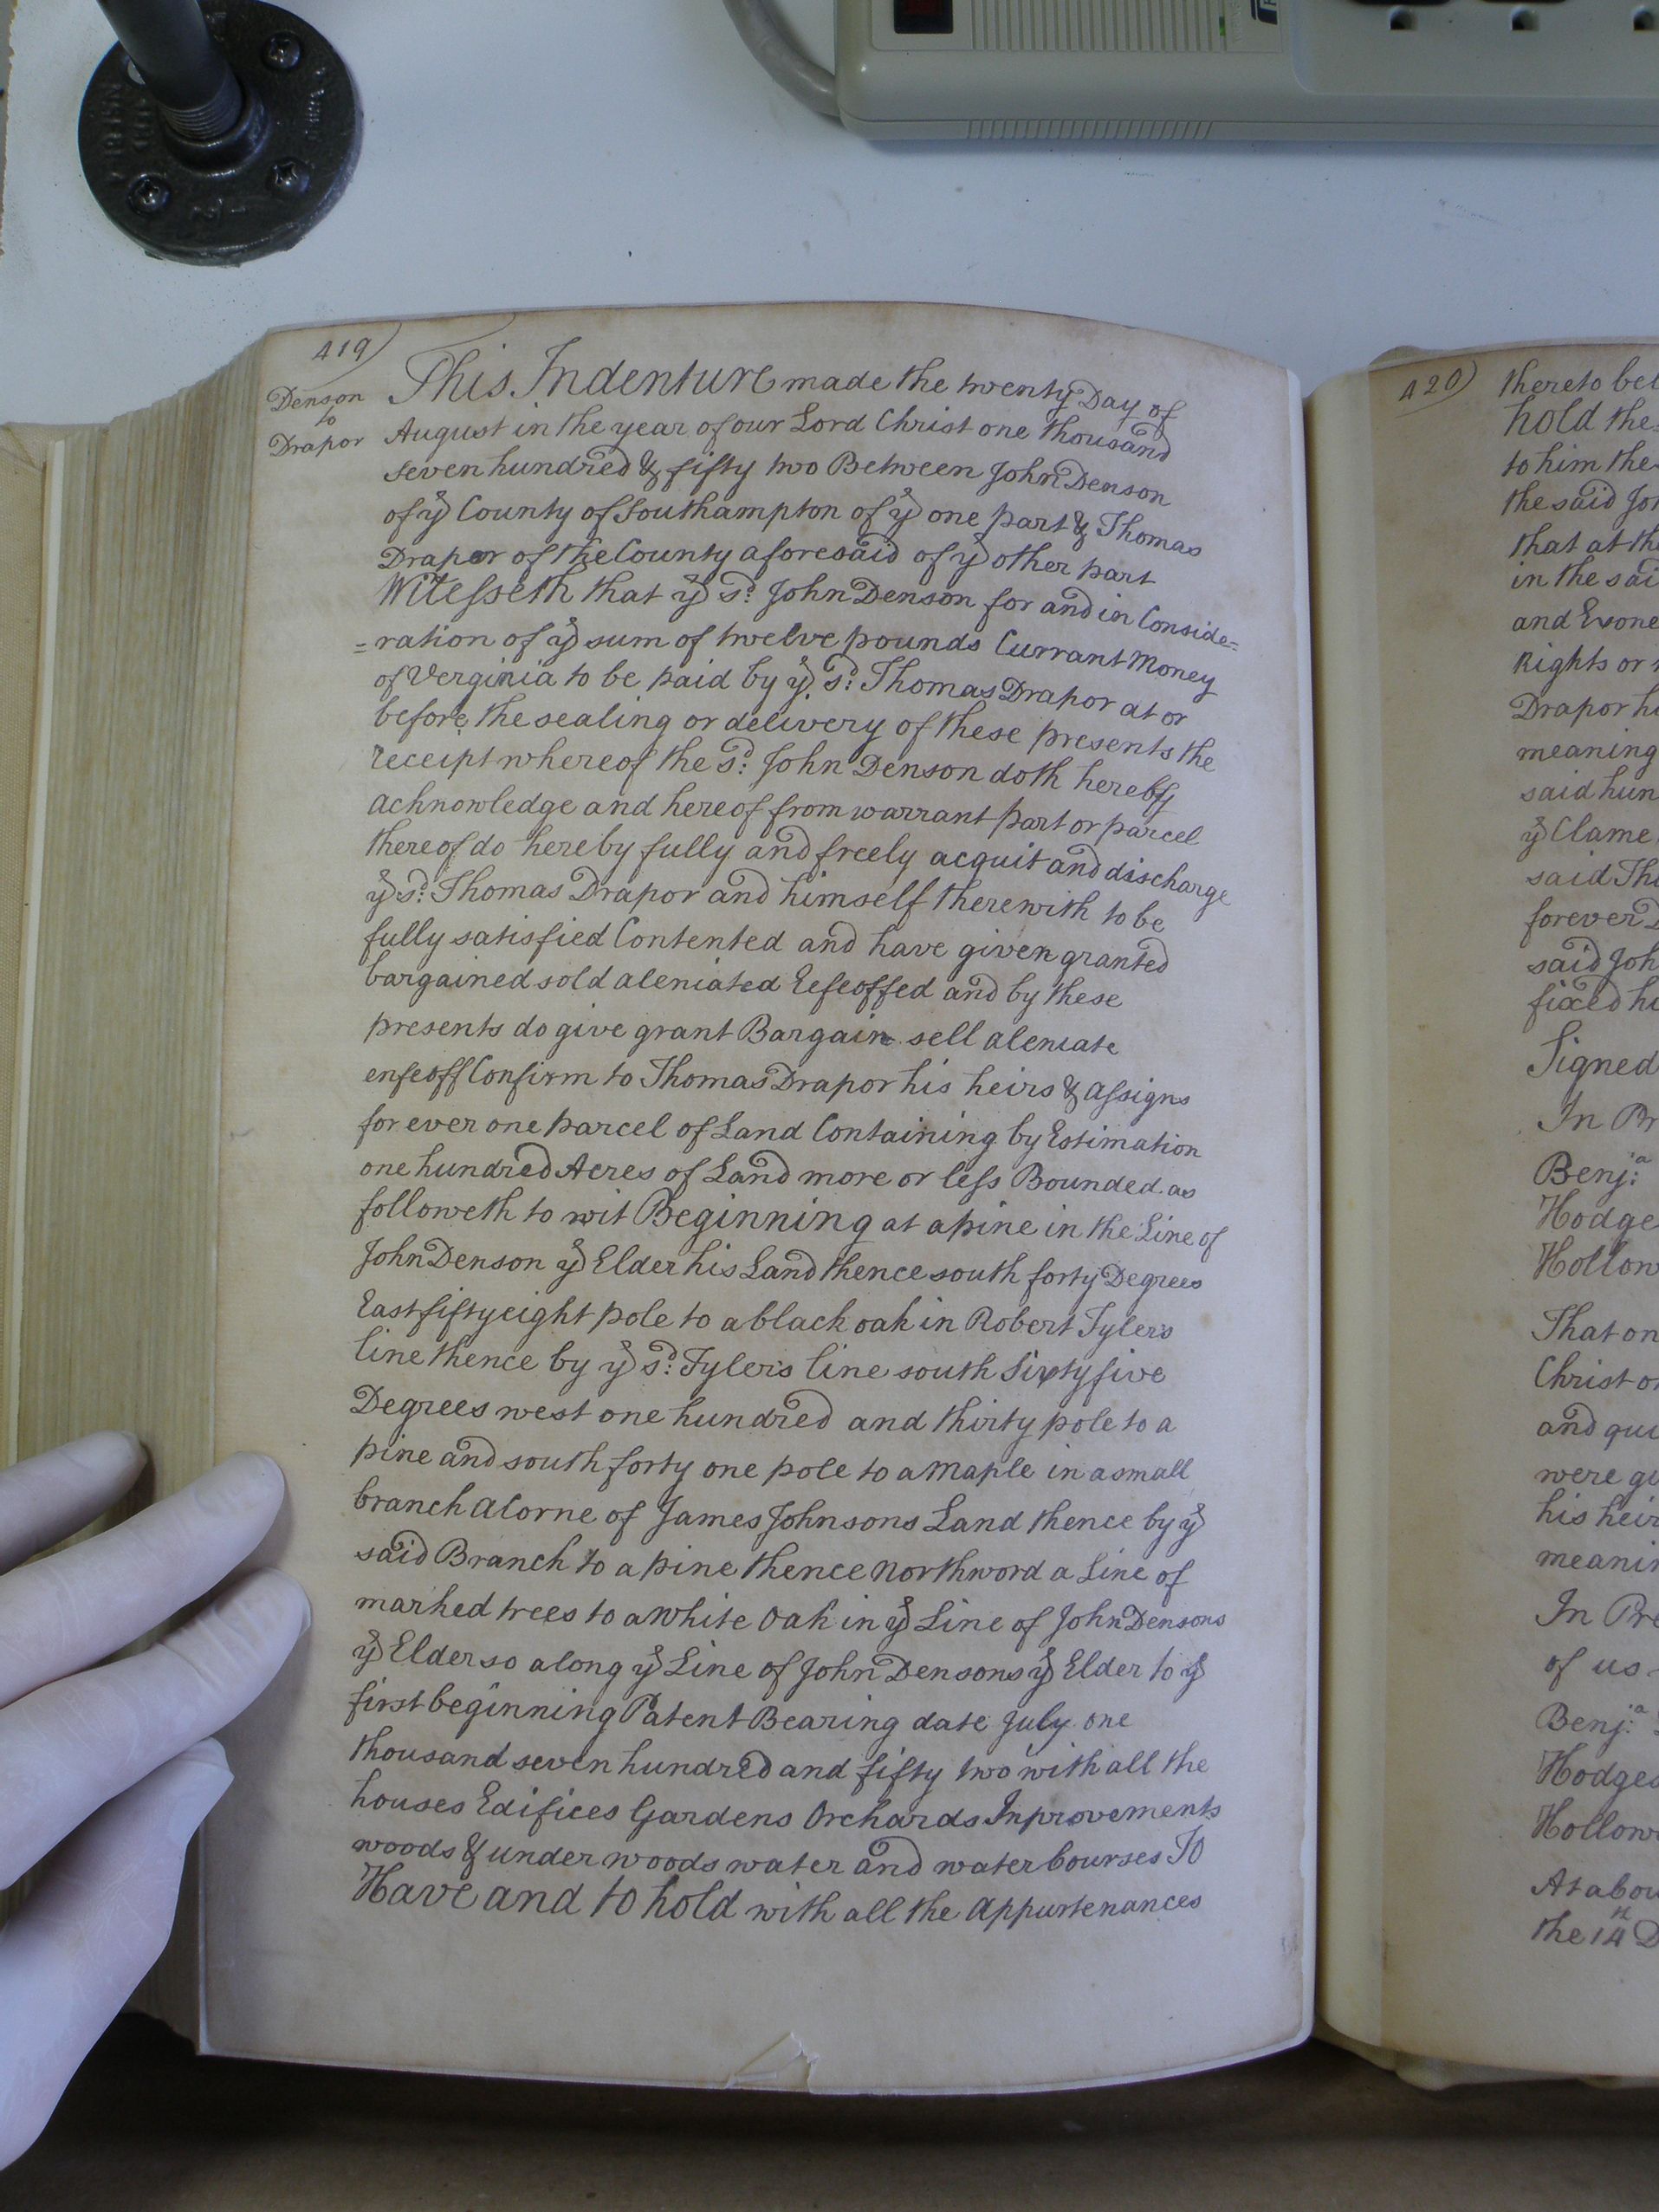 419)
Denson
to
Drapor
This Indenture made the twenty Day of
August in the year of our Lord Christ one thousand
seven hundred & fifty two Between John Denson
of ye County of Southampton of ye one part & Thomas
Drapor of the County aforesaid of ye other part
Witesseth that ye sd: John Denson for and in Conside=
=ration of ye sum of twelve pounds Currant Money
of Verginia to be paid by ye sd: Thomas Drapor at or
before the sealing or delivery of these presents the
receipt whereof the sd: John Denson doth hereby
acknowledge and hereof from warrant part or parcel
thereof do hereby fully and freely acquit and discharge
ye sd: Thomas Drapor and himself therewith to be
fully satisfied Contented and have given granted
bargained sold aleniated Eefeoffed and by these
presents do give grant Bargain sell aleniate
enfeoff Confirm to Thomas Drapor his heirs & assigns
for ever one parcel of Land Containing by Estimation
one hundred Acres of Land more or less Bounded as
followeth to wit Beginning at a pine in the Line of
John Denson ye Elder his Land thence south forty Degrees
East fifty eight pole to a black oak in Robert Tylers
line thence by ye sd: Tylers line south Sixty five
Degrees west one hundred and thirty pole to a
pine and south forty one pole to a Maple in a small
branch a Corne of James Johnsons Land thence by ye
said Branch to a pine thence northword a Line of
marked trees to a White Oak in ye Line of John Densons
ye Elder so along ye Line of John Densons ye Elder to ye
first beginning Patent Bearing date July one
thousand seven hundred and fifty two with all the
houses Edifices Gardens Orchards Inprovements
woods & under woods water and water bourses To
Have and to hold with all the appurtenances
420)
thereto bel
hold the
to him the
the said Joh
that at the
in the sai
and Exone
Rights or
Drapor hi
meaning
said hun
ye Clame
said Tho
forever
said Joh
fixed hi
Signed
In Pr
Benja:
Hodge
Hollow
That on
Christ o
and qui
were gi
his heir
meanin
In Pre
of us
Benja:
Hodges
Hollow
At a bou
the 14th D